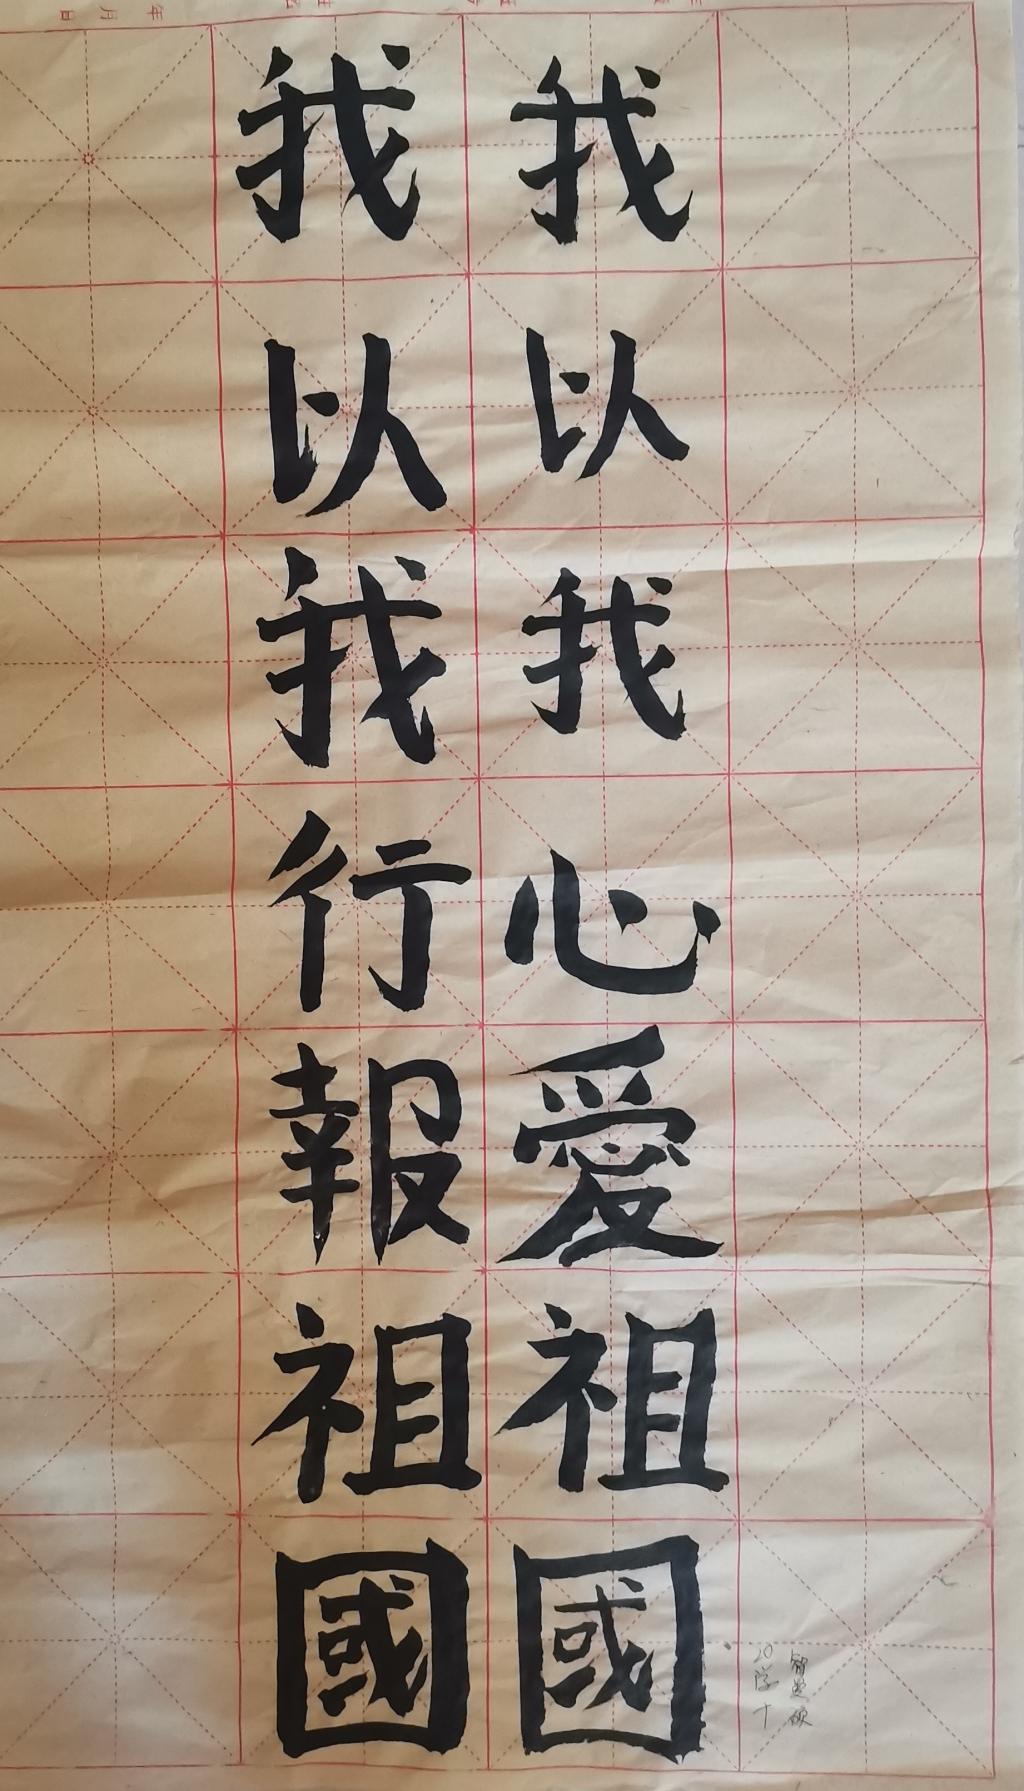 我以我心愛祖國
我以我行報祖國